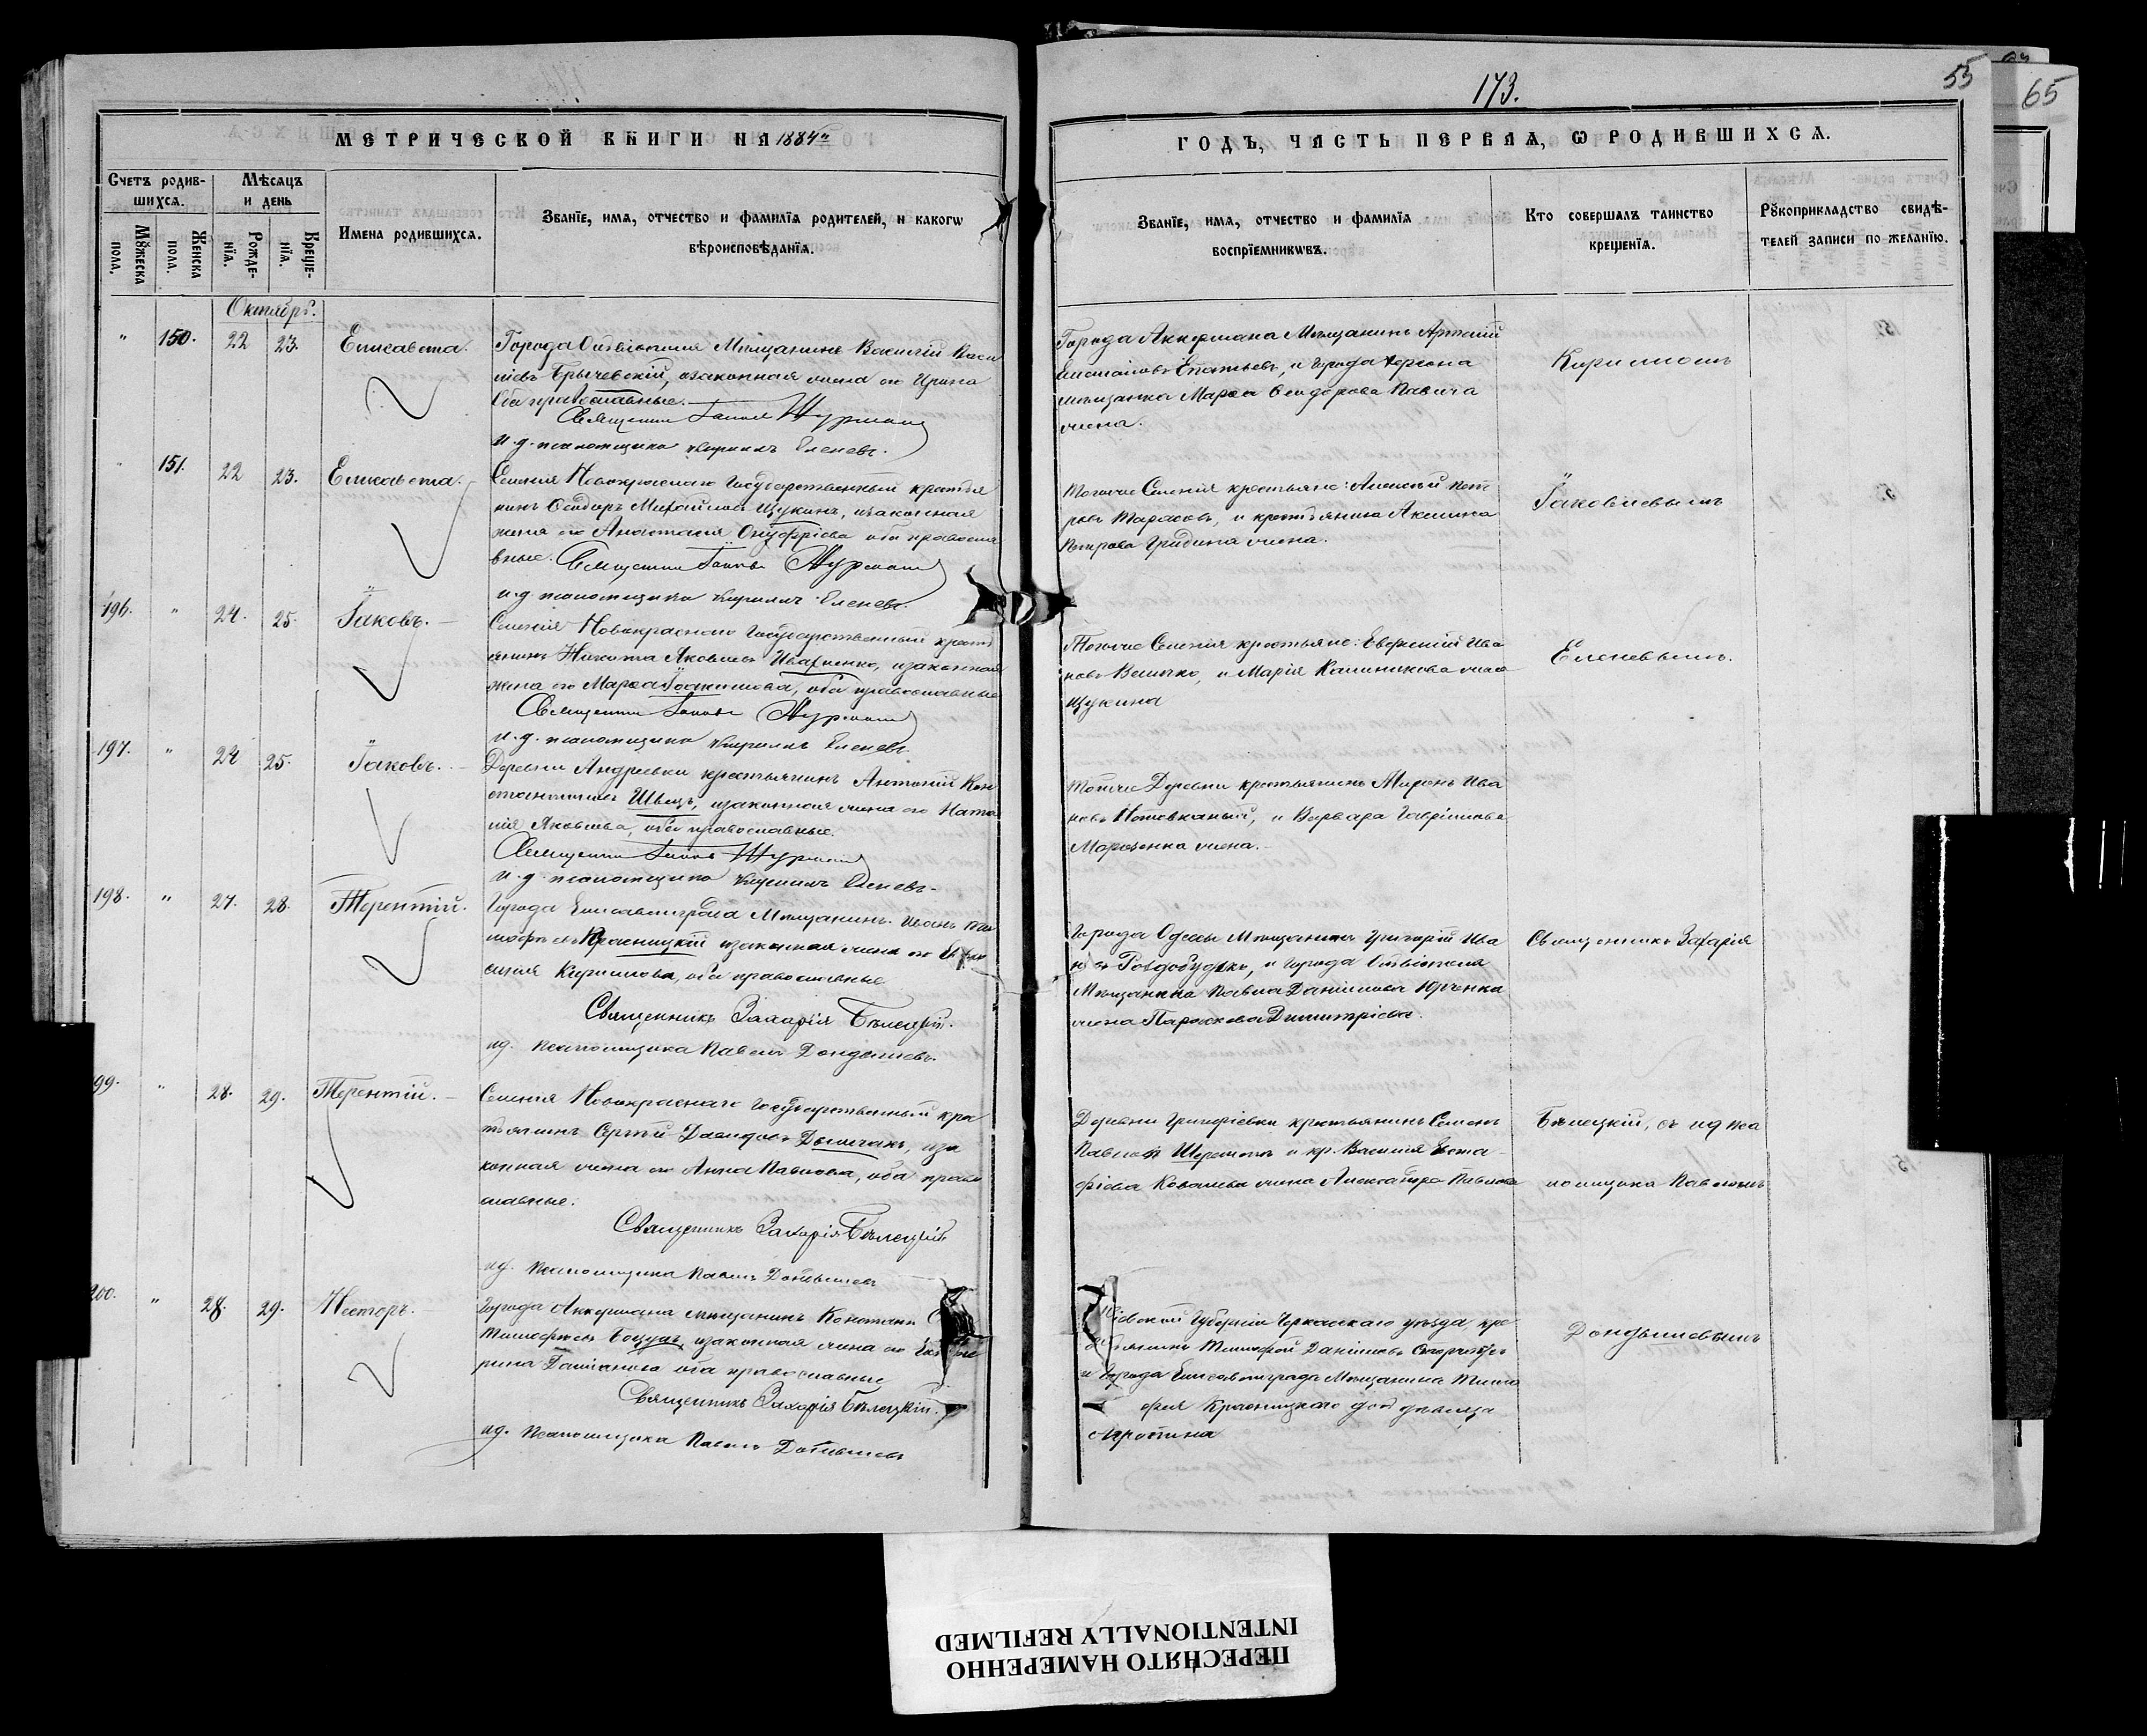 173.
55
65
МЕТРИЧЕСКОЙ КНИГИ НА 1884й
ГОДЪ, ЧАСТЬ ПЕРВАЯ, Ѡ РОДИВШИХСЯ.
Счетъ родив-
шихся.
Мѣсяцъ
и день
Мужеска
пола.
Женска
пола.
Рожде-
нїя.
Креще-
нїя.
Имена родившихся.
Званїе, имя, отчество и фамилїя родителей, и какогѡ
вѣроисповѣданїя.
Званїе, имя, отчество и фамилїя
воспрїемникѡвъ.
Кто совершалъ таинство
крещенїя.
Рꙋкоприкладство свидѣ-
телей записи по желанїю.
Октябрь.
" 150. 22 23. Елисавета.
Города Мѣщанинъ Василій Васи
ліевъ Бричевскій, и законная жена его Ирина
оба православные.
Священникъ Журман
и. д. псаломщика Кириллъ Еленевъ.
Города Аккермана Мѣщанинъ
и города Херсона
мѣщанка Марѳа Ѳеодорова
жена.
Кирилломъ
" 151. 22 23. Елисавета.
Селенія Новокраснаго Государственный крестья
нинъ Ѳеодоръ Михайловъ Щукинъ, и законная
жена его Анастасія Онуфріева оба правосла
вные. Священникъ Журман
и. д. псаломщика Кириллъ Еленевъ.
Тогоже Селенія крестьяне: Алексій Пет
ровъ Тарасовъ, и крестьянина Акилина
Петрова Гридина жена.
Іаковлевымъ
196. " 24. 25. Іаковъ.
Селенія Новокраснаго Государственный крест
янинъ Никита Яковлевъ и законная
жена его Марѳа Іоакимова, оба православные
Священникъ Журман
и. д. псаломщика Кириллъ Еленевъ
Тогоже Селенія крестьяне: Евфимій Ива
новъ Величко, и Марія Калиникова жена
Щукина
Еленевымъ.
197. " 24 25. Іаковъ.
Деревни Андреевки крестьянинъ Антоній Кон
стантиновъ Швецъ, и законная жена его Ната
лія Яковлева, оба православные.
Священникъ Журман
и. д. псаломщика Кириллъ Еленевъ.
Тойже Деревни крестьянинъ Миронъ Ива
новъ и Варвара Гаврилова
Марченка жена.
198. " 27. 28. Терентій.
Города Елисаветграда Мѣщанинъ Иванъ Ти
мофѣевъ Красницкій и законная жена его
Кирилова, оба православные
Священникъ Захарія Бѣлецкій.
ид. псаломщика Павелъ Дондышевъ.
Города Одессы Мѣщанинъ Григорій Ива
новъ Роздобудько, и города
Мѣщанина Павла Данилова Юрченка
жена Параскева Димитріева.
Священникъ Захарія
199. " 28. 29. Терентій.
Селенія Новокраснаго Государственный кре
стьянинъ Сергѣй Давидовъ и за
конная жена его Анна Павлова, оба право
славные.
Священникъ Захарія Бѣлецкій
ид. псаломщика Павелъ Дондышевъ
Деревни Григоріевки крестьянинъ Семенъ
Павловъ и кр. Василія Евста
фіева Ковалева жена Александра Павлова
Бѣлецкій, съ ид пса
ломщика Павломъ
200. " 28. 29. Несторъ.
Города Аккермана мѣщанинъ Констант
Тимофѣевъ и законная жена его Екате
рина Даміанова оба православные
Священникъ Захарія Бѣлецкій.
ид. псаломщика Павелъ Дондышевъ
Кіевской Губерніи Черкасскаго уѣзда, кре
стьянинъ Тимофей Даніиловъ
и города Елисаветграда Мѣщанина Тимо
фея Красницкаго дочь дѣвица
Агрипина
Дондышевымъ
ПЕРЕСНЯТО НАМЕРЕННО
INTENTIONALLY REFILMED